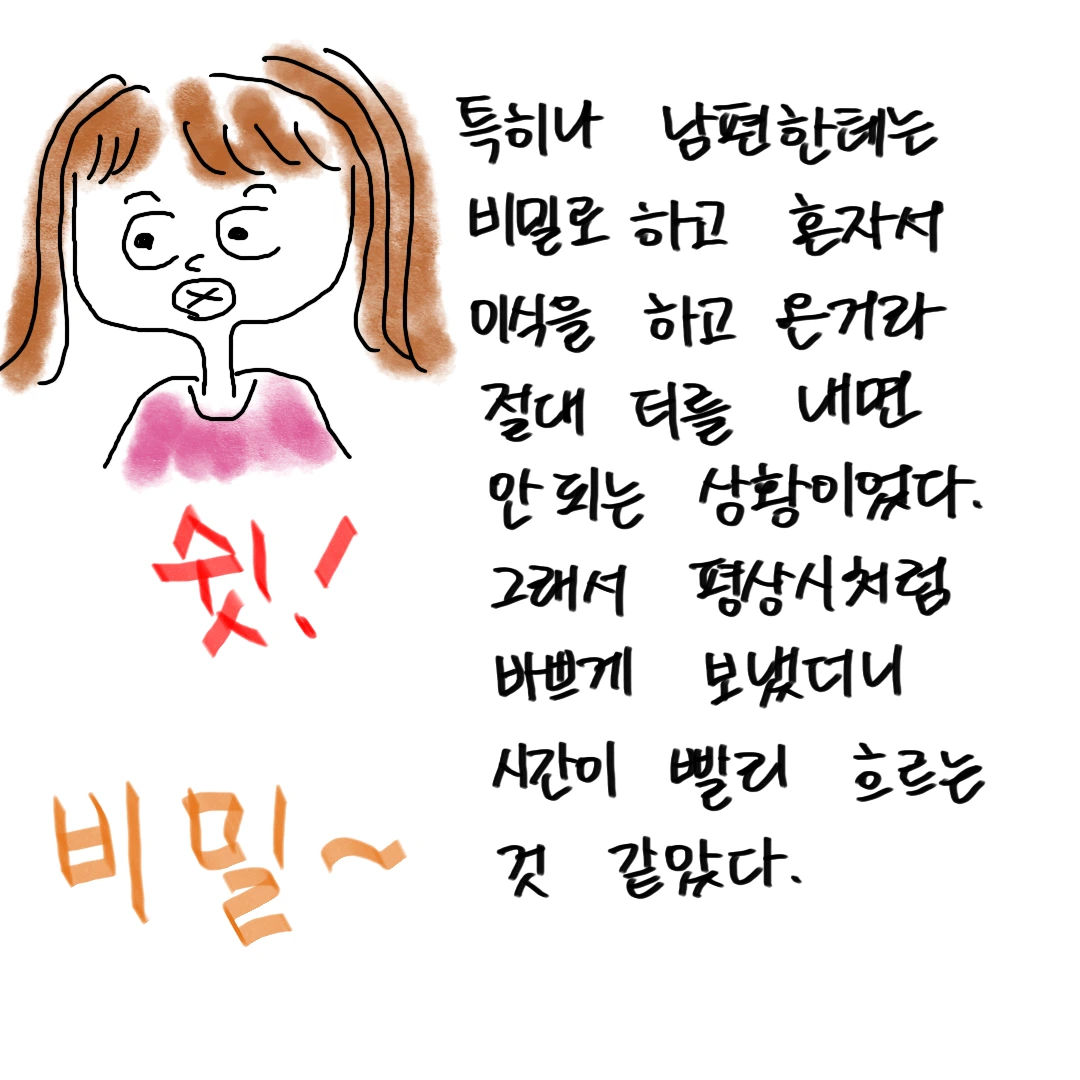 특히나 남편한테는
비밀로 하고 혼자서
이식을 하고 온거라
절대 티를 내면
안 되는 상황이었다.
그래서 평상시처럼
바쁘게 보냈더니
시간이 빨리 흐르는
것 같았다.
쉿!
비밀~